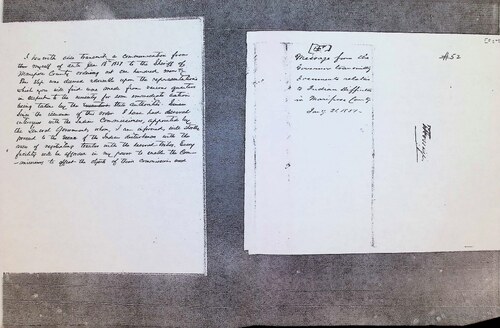 I herewith also transmit a communication from
this myself of date Jan 13th 1851 to the Sheriff of
Mariposa County ordering out one hundred men.
This step was deemed advisable upon the representations
which you will find was made from various quarters
in respect to the necessity for some immediate action
being taken by the State authorities. Since
the issuance of this order I have had several
interviews with the Indian Commissioners, appointed by
the General Government, whom, I am informed, will shortly
proceed to the scene of the Indian disturbances with the
view of negotiating treaties with the several tribes, every
facility will be afforded in my power to enable the Com-
missioners to effect the objects of their commission and
Message from the
Governor transmitting
documents relative
to Indian difficulties
in Mariposa County
#52